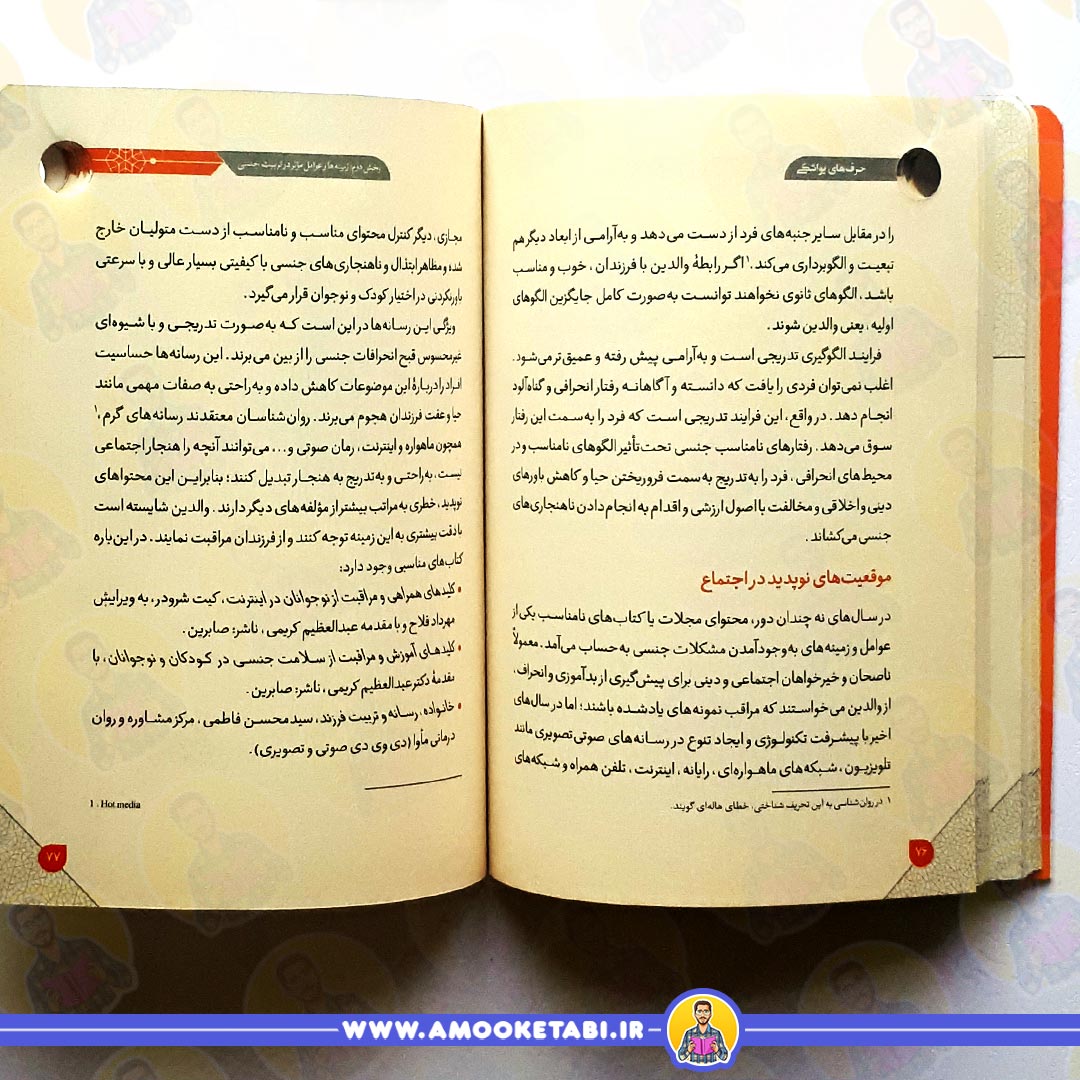 حرف‌های یواشکی
را در مقابل سایر جنبه‌های فرد از دست می‌دهد و به‌آرامی از ابعاد دیگر هم
تبعیت و الگوبرداری می‌کند.۱ اگر رابطهٔ والدین با فرزندان، خوب و مناسب
باشد، الگوهای ثانوی نخواهند توانست به‌صورت کامل جایگزین الگوهای
اولیه، یعنی والدین شوند.
فرایند الگوگیری تدریجی است و به‌آرامی پیش رفته و عمیق‌تر می‌شود.
اغلب نمی‌توان فردی را یافت که دانسته و آگاهانه رفتار انحرافی و گناه‌آلود
انجام دهد. در واقع، این فرایند تدریجی است که فرد را به سمت این رفتار
سوق می‌دهد. رفتارهای نامناسب جنسی تحت‌تأثیر الگوهای نامناسب و در
محیط‌های انحرافی، فرد را به‌تدریج به سمت فروریختن حیا و کاهش باورهای
دینی و اخلاقی و مخالفت با اصول ارزشی و اقدام به انجام دادن ناهنجاری‌های
جنسی می‌کشاند.
موقعیت‌های نوپدید در اجتماع
در سال‌های نه چندان دور، محتوای مجلات یا کتاب‌های نامناسب یکی از
عوامل و زمینه‌های به‌وجودآمدن مشکلات جنسی به حساب می‌آمد. معمولاً
ناصحان و خیرخواهان اجتماعی و دینی برای پیش‌گیری از بدآموزی و انحراف،
از والدین می‌خواستند که مراقب نمونه‌های یادشده باشند؛ اما در سال‌های
اخیر با پیشرفت تکنولوژی و ایجاد تنوع در رسانه‌های صوتی‌تصویری مانند
تلویزیون، شبکه‌های ماهواره‌ای، رایانه، اینترنت، تلفن همراه و شبکه‌های
۱ در روان‌شناسی به این تحریف شناختی، خطای هاله‌ای گویند.
۷۶
بخش دوم: زمینه‌ها و عوامل مؤثر در تربیت جنسی
مجازی، دیگر کنترل محتوای مناسب و نامناسب از دست متولیان خارج
شده و مظاهر ابتذال و ناهنجاری‌های جنسی با کیفیتی بسیار عالی و با سرعتی
باورنکردنی در اختیار کودک و نوجوان قرار می‌گیرد.
ویژگی این رسانه‌ها در این است که به‌صورت تدریجی و با شیوه‌ای
غیرمحسوس قبح انحرافات جنسی را از بین می‌برند. این رسانه‌ها حساسیت
افراد را دربارهٔ این موضوعات کاهش داده و به‌راحتی به صفات مهمی مانند
حیا و عفت فرزندان هجوم می‌برند. روان‌شناسان معتقدند رسانه‌های گرم،۱
همچون ماهواره و اینترنت، رمان صوتی و... می‌توانند آنچه را هنجار اجتماعی
نیست، به‌راحتی و به‌تدریج به هنجار تبدیل کنند؛ بنابراین این محتواهای
نوپدید، خطری به مراتب بیشتر از مؤلفه‌های دیگر دارند. والدین شایسته است
با دقت بیشتری به این زمینه توجه کنند و از فرزندان مراقبت نمایند. در این‌باره
کتاب‌های مناسبی وجود دارد:
• کلیدهای همراهی و مراقبت از نوجوانان در اینترنت، کیت شرودر، به ویرایش
مهرداد فلاح و با مقدمه عبدالعظیم کریمی، ناشر: صابرین.
• کلیدهای آموزش و مراقبت از سلامت جنسی در کودکان و نوجوانان، با
مقدمهٔ دکتر عبدالعظیم کریمی، ناشر: صابرین.
• خانواده، رسانه و تربیت فرزند، سید محسن فاطمی، مرکز مشاوره و روان
درمانی مأوا (دی وی دی صوتی و تصویری).
1 . Hot media
۷۷
WWW.AMOOKETABI.IR